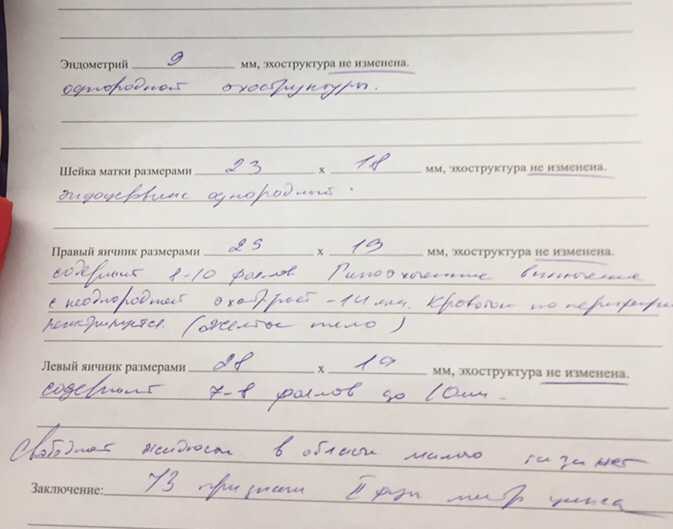 Эндометрий 9 мм, эхоструктура не изменена.
однородной эхоструктуры.
Шейка матки размерами 23 х 18 мм, эхоструктура не изменена.
эндоцервикс однородный.
Правый яичник размерами х 19 мм, эхоструктура не изменена.
содержит 8-10 фоллов Гипоэхогенное включение
с неоднородной 14 мм. Кровоток по периферии
(желтое тело)
Левый яичник размерами 28 х 19 мм, эхоструктура не изменена.
содержит 7-8 фоллов до 10мм.
Свободной жидкости в области малого таза нет
Заключение: УЗ признаки II фазы цикла